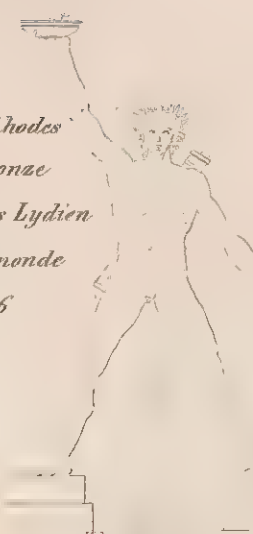 Rhodes
onze
s Lydien
monde
6